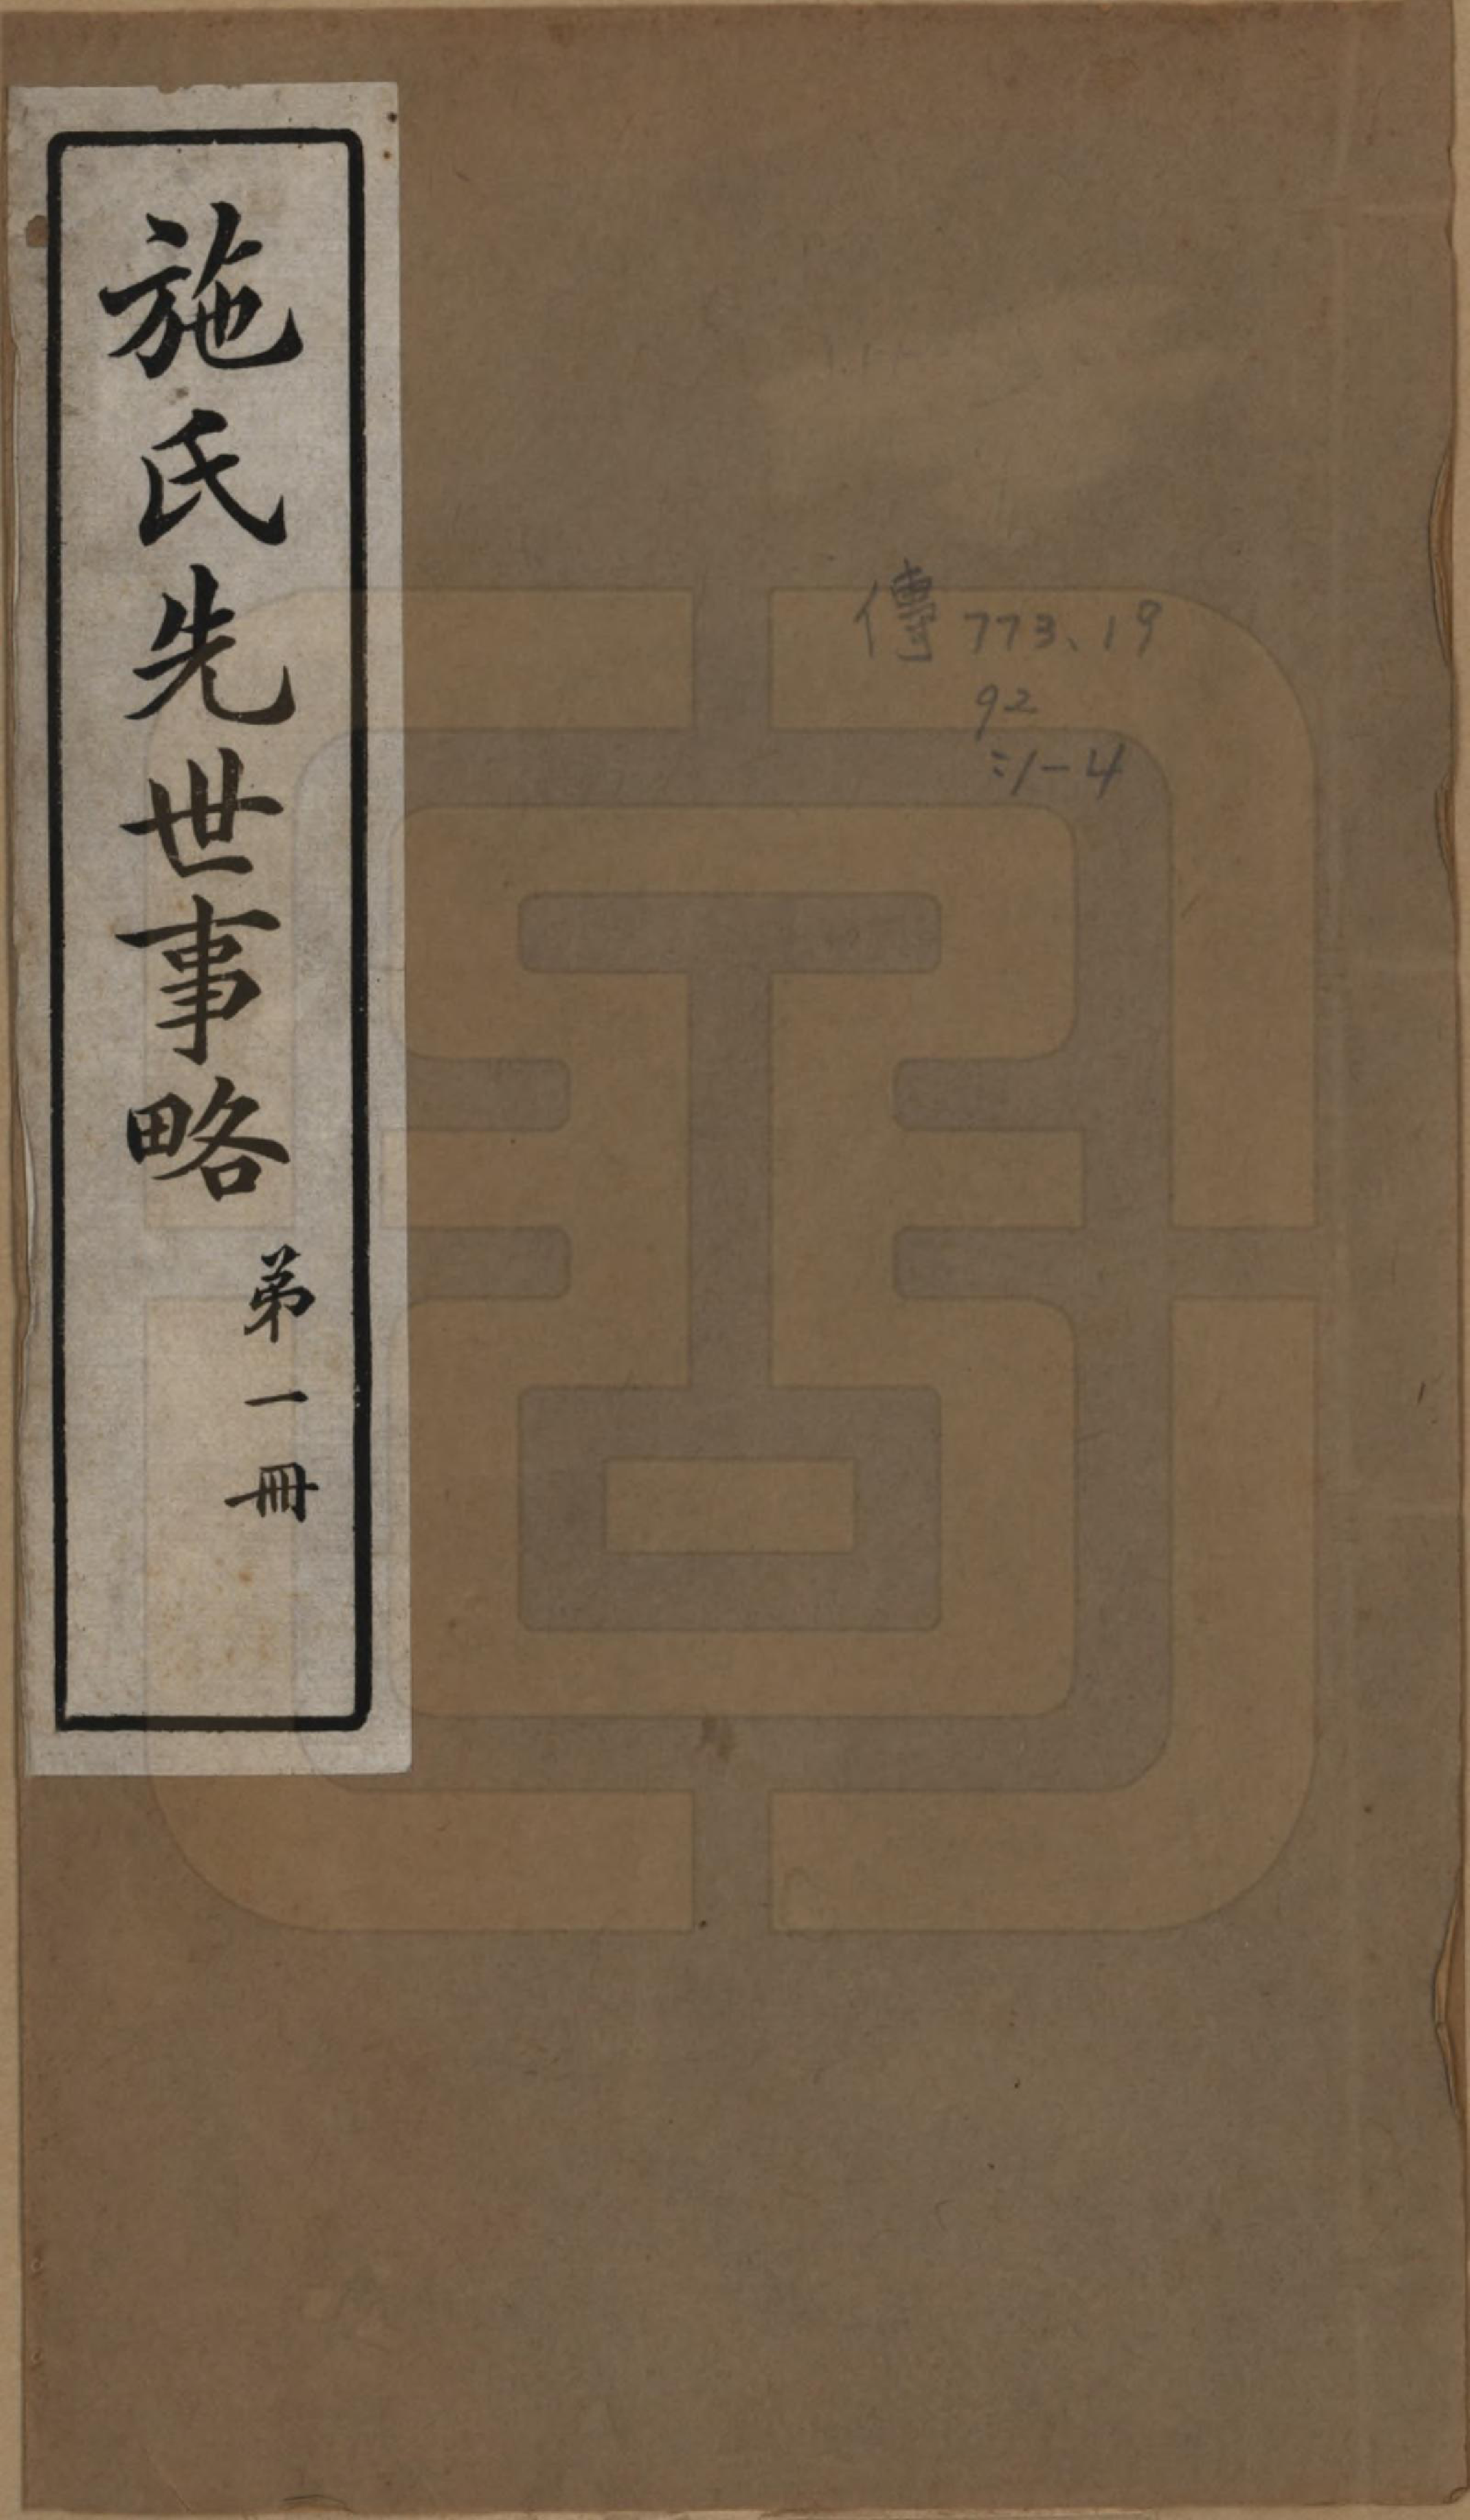 施氏先世事略
弟一冊
傳 773.19
92
:1-4